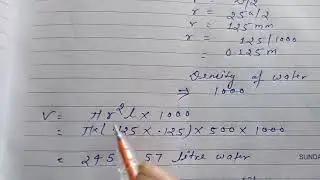 r = 250/2
r = 125 mm
r = 125/1000
= 0.125 m
Density of water
1000
V = πr²l × 1000
= π × (.125 × .125) × 500 × 1000
= 245 57 litre water
SUNDA